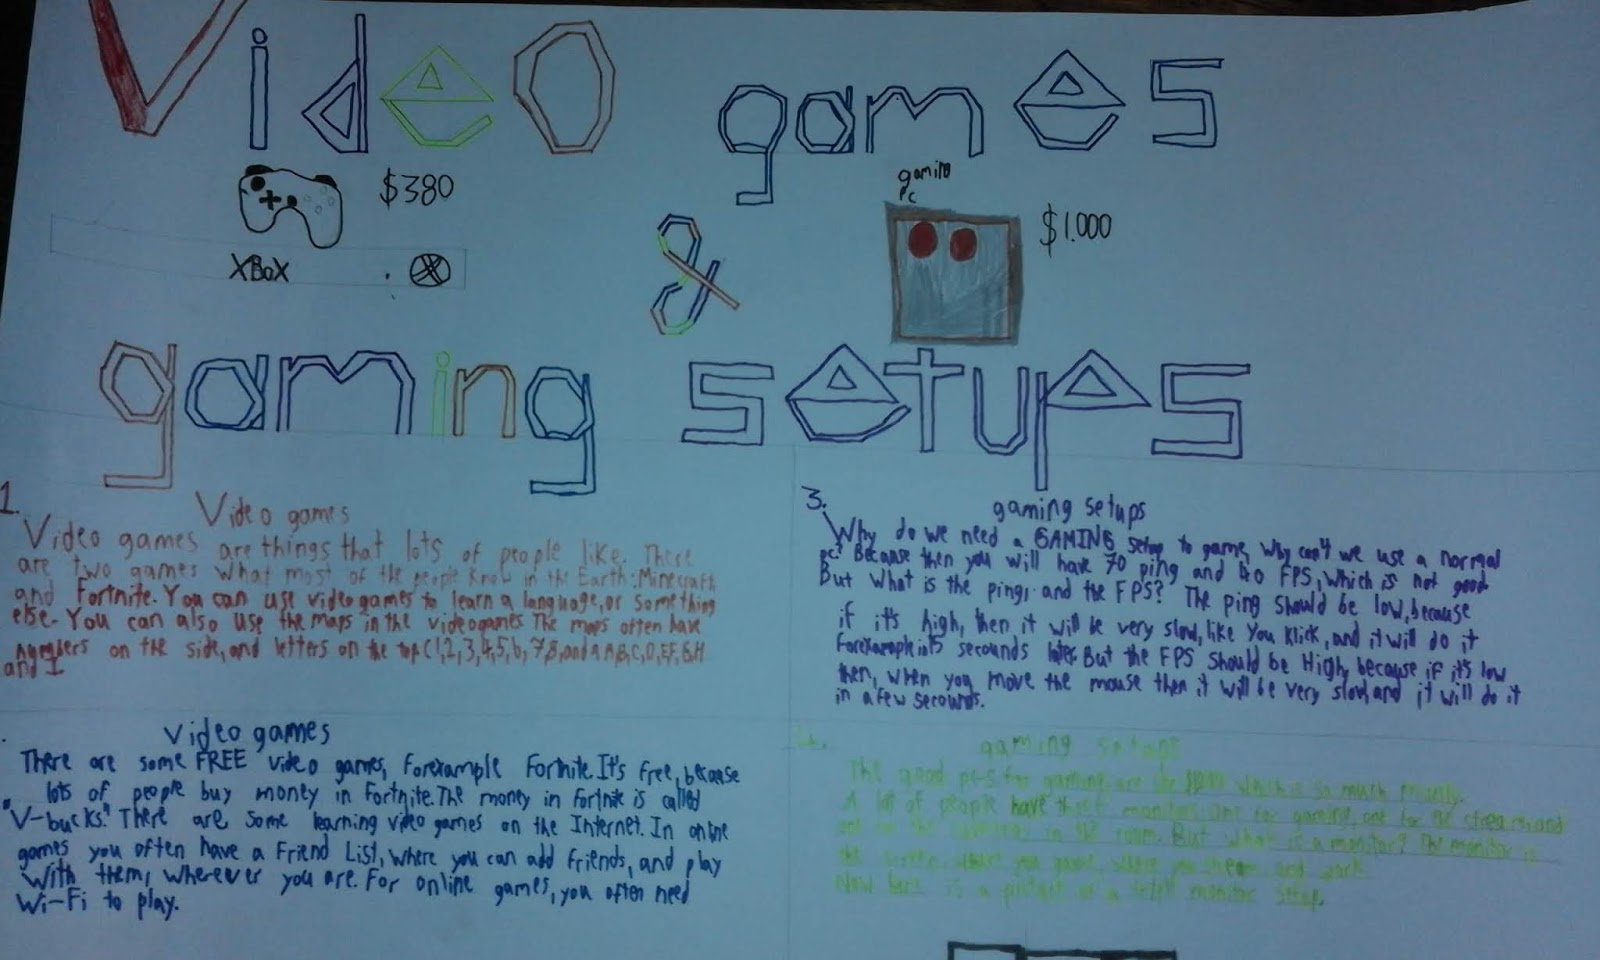 Video games
$380
gaming
PC
$1.000
XBOX
&
gaming setups
1.
Video games
Video games are things that lots of people like. There
are two games what most of the people know in the Earth: Minecraft
and Fortnite. You can use videogames to learn a language, or something
else. You can also use the maps in the videogames The maps often have
numbers on the side, and letters on the top (1,2,3,4,5,6,7,8, and A,B,C,D,E,F,G,H
and I
Video games
There are some FREE video games, Forexample Fortnite. It's free, because
lots of people buy money in Fortnite. The money in Fortnite is called
"V-bucks." There are some learning video games on the Internet. In online
games you often have a Friend List, where you can add friends, and play
with them, wherever you are. For online games, you often need
Wi-Fi to play.
3.
gaming setups
Why do we need a GAMING setup to game, why can't we use a normal
pc? Because then you will have 70 ping and 40 FPS, which is not good
But what is the ping, and the FPS? The ping should be low, because
if it's high, then it will be very slow, like you klick, and it will do it
Forexample in 5 secounds later. But the FPS should be High, because if it's low
then, when you move the mouse then it will be very slow, and it will do it
in a few secounds.
4.
gaming setups
The good pc-s for gaming are for $1000 which is so much money.
A lot of people have three monitors, one for gaming, one for the stream, and
one in the room. But what is a monitor? The monitor is
the screen, where you game, where you and work.
Now here is a picture of a monitor setup.